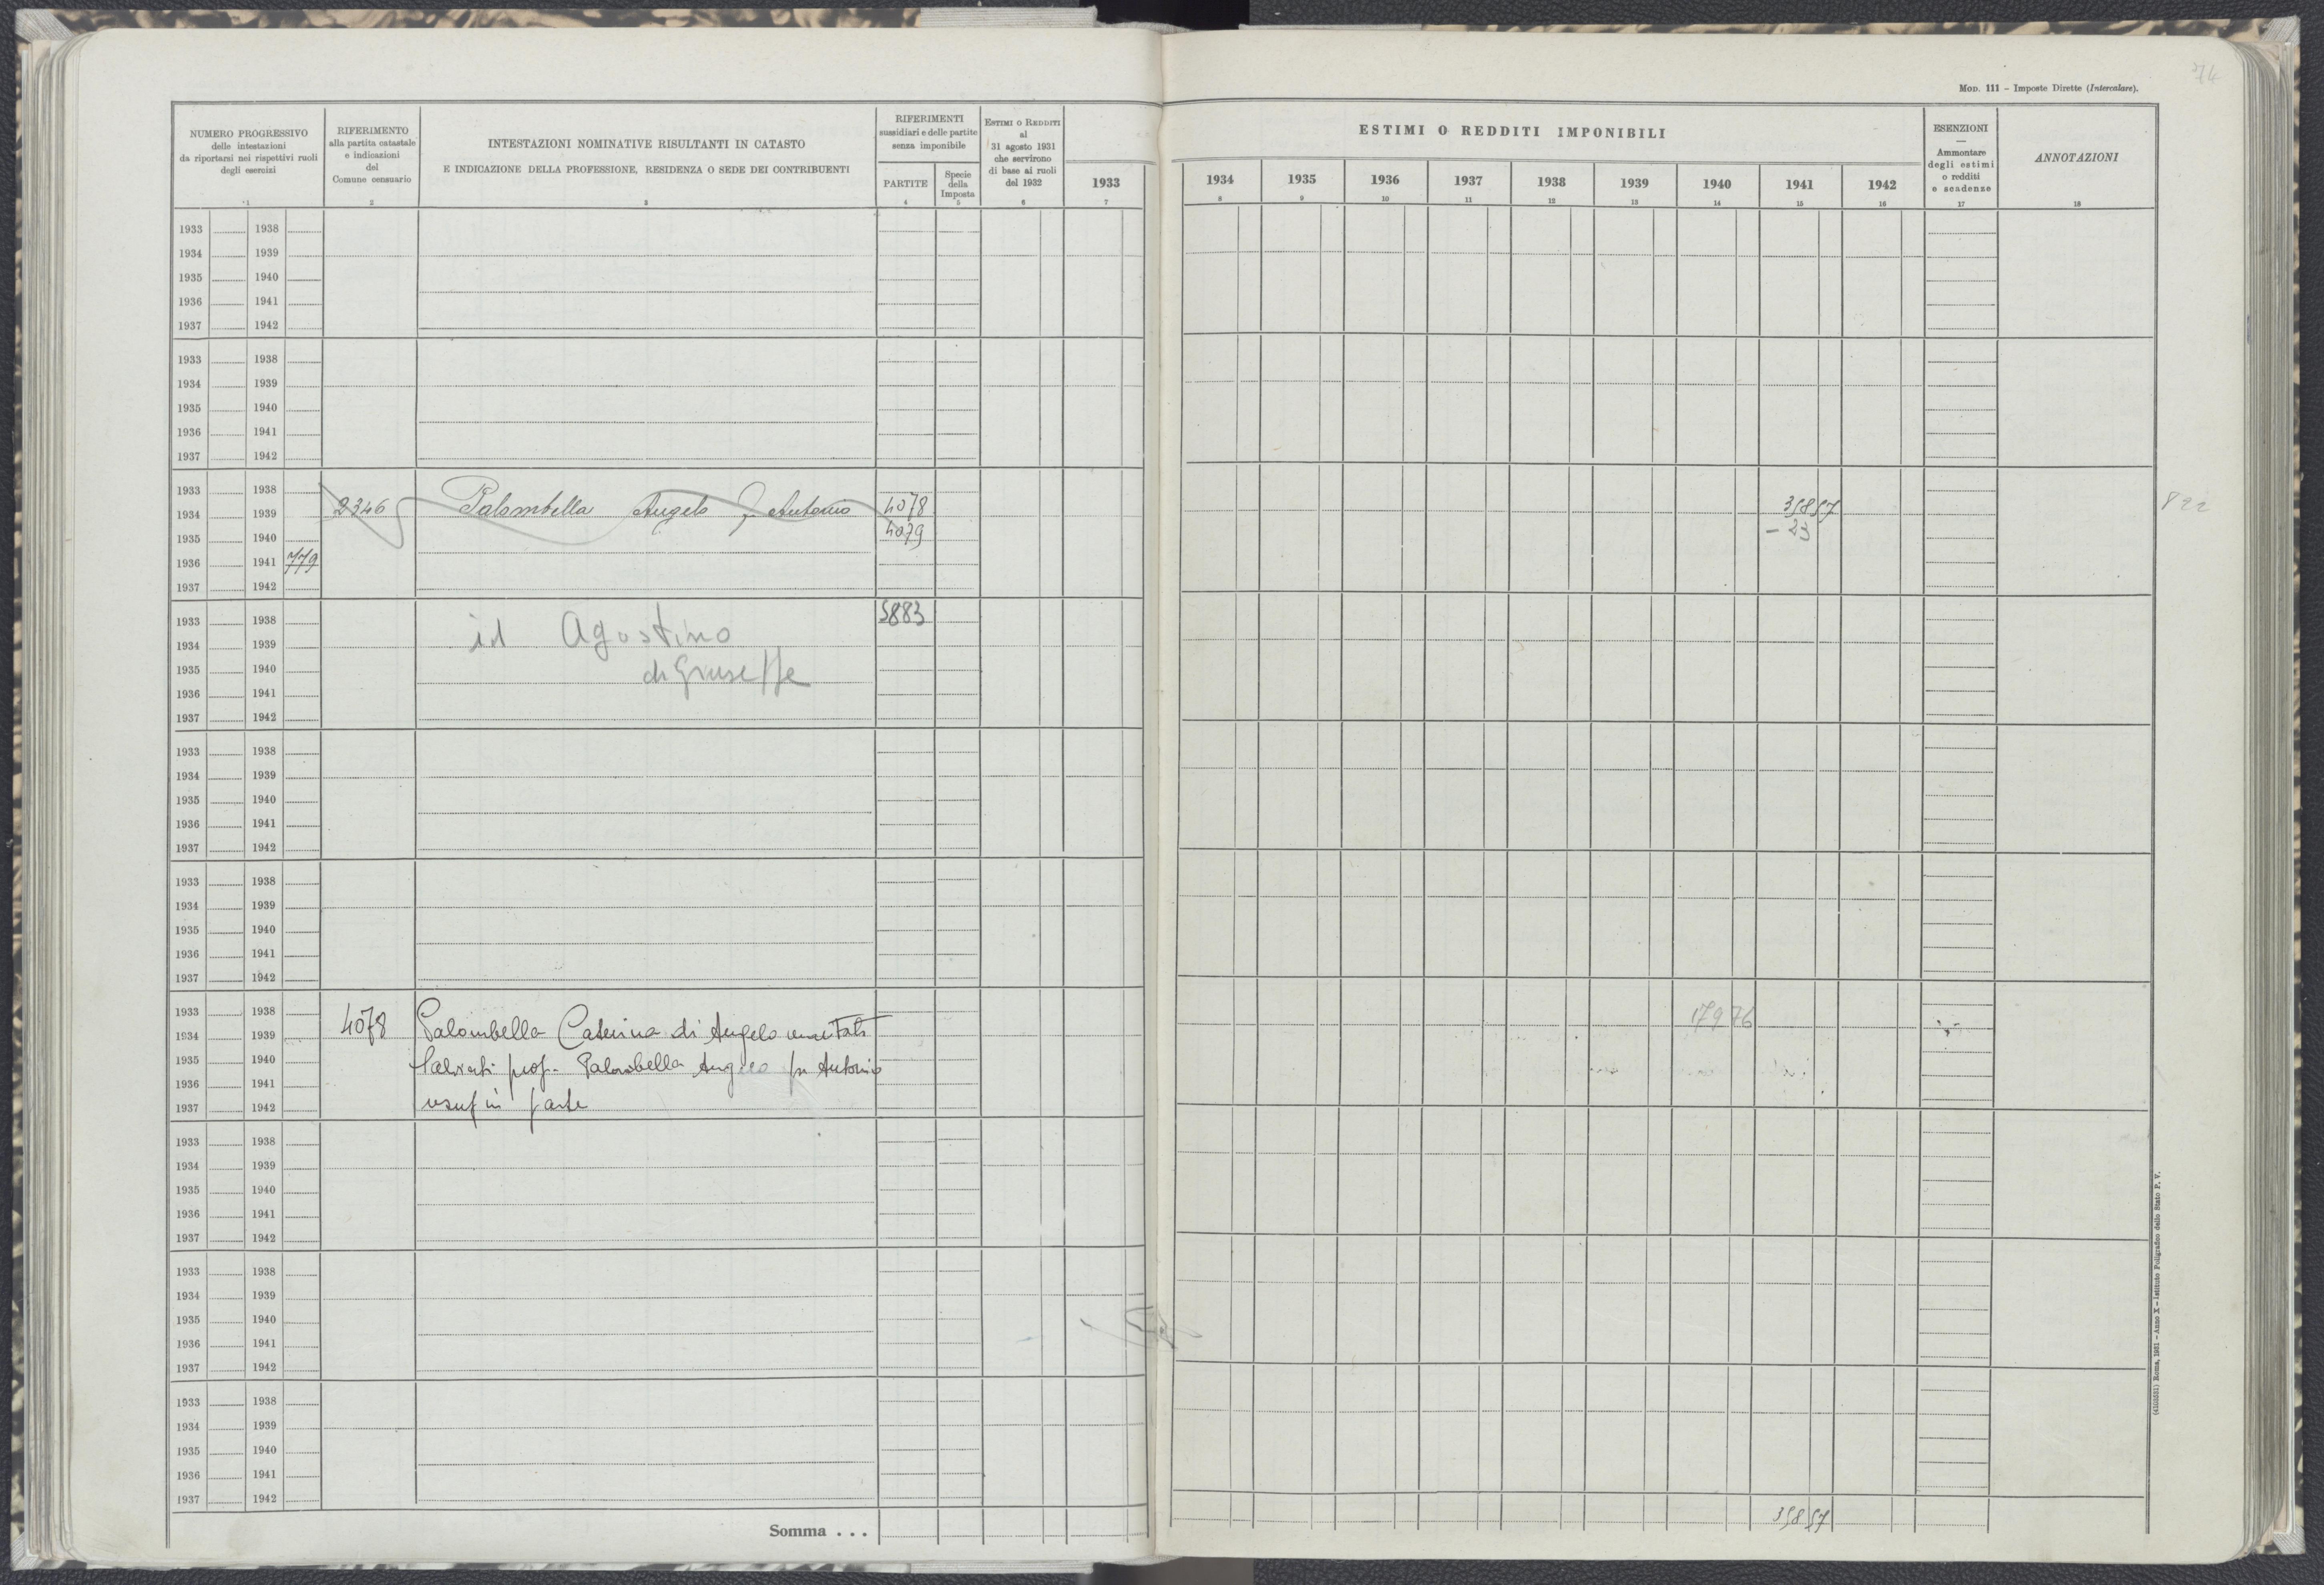 74
MOD. 111 – Imposte Dirette (Intercalare).
NUMERO PROGRESSIVO
delle intestazioni
da riportarsi nei rispettivi ruoli
degli esercizi
1
RIFERIMENTO
alla partita catastale
e indicazioni
del
Comune censuario
2
INTESTAZIONI NOMINATIVE RISULTANTI IN CATASTO
E INDICAZIONE DELLA PROFESSIONE, RESIDENZA O SEDE DEI CONTRIBUENTI
3
RIFERIMENTI
sussidiari e delle partite
senza imponibile
PARTITE
4
Specie
della
Imposta
5
ESTIMI O REDDITI
al
31 agosto 1931
che servirono
di base ai ruoli
del 1932
6
1933
7
ESTIMI O REDDITI IMPONIBILI
1934 1935 1936 1937 1938 1939 1940 1941 1942
8 9 10 11 12 13 14 15 16
ESENZIONI
—
Ammontare
degli estimi
o redditi
e scadenze
17
ANNOTAZIONI
18
1933 1938
1934 1939
1935 1940
1936 1941
1937 1942
1933 1938
1934 1939
1935 1940
1936 1941
1937 1942
1933 1938
1934 1939 2346 Palombella Angelo f Antonio 4078 35857 822
1935 1940 4079 – 23
1936 1941 779
1937 1942
1933 1938 5883
1934 1939 id Agostino
1935 1940 di Giuseppe
1936 1941
1937 1942
1933 1938
1934 1939
1935 1940
1936 1941
1937 1942
1933 1938
1934 1939
1935 1940
1936 1941
1937 1942
1933 1938 17976
1934 1939 4078 Palombella Caterina di Angelo maritata
1935 1940 prof. Palombella Angelo fu Antonio
1936 1941
1937 1942 usuf in parte
1933 1938
1934 1939
1935 1940
1936 1941
1937 1942
1933 1938
1934 1939
1935 1940
1936 1941
1937 1942
1933 1938
1934 1939
1935 1940
1936 1941
1937 1942
Somma . . . 35857
(4103551) Roma, 1931 – Anno X – Istituto Poligrafico dello Stato P. V.